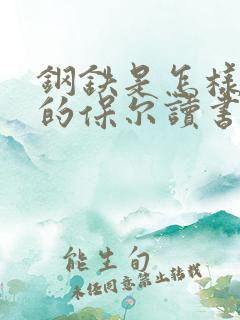 鋼鉄是怎樣
的保尔讀書
能生旬
未任同意禁止转载